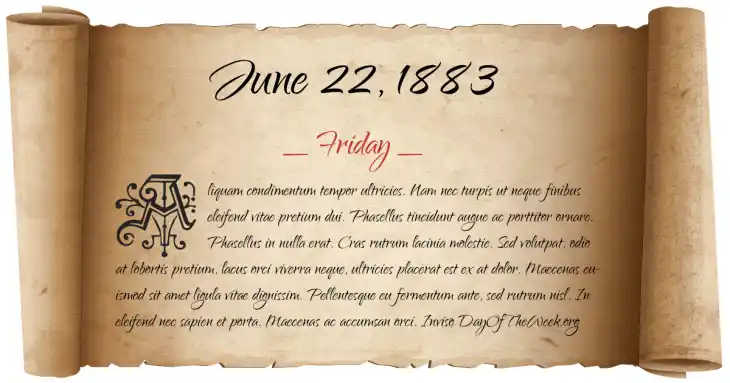 June 22, 1883
_ Friday _
Aliquam condimentum tempor ultricies. Nam nec turpis ut neque finibus
eleifend vitae pretium dui. Phasellus tincidunt augue ac porttitor ornare.
Phasellus in nulla erat. Cras rutrum lacinia molestie. Sed volutpat, odio
at lobortis pretium, lacus orci viverra neque, ultricies placerat est ex at dolor. Maecenas eu-
ismod sit amet ligula vitae dignissim. Pellentesque eu fermentum ante, sed rutrum nisl. In
eleifend nec sapien et porta. Maecenas ac accumsan orci. Inviso DayOfTheWeek.org